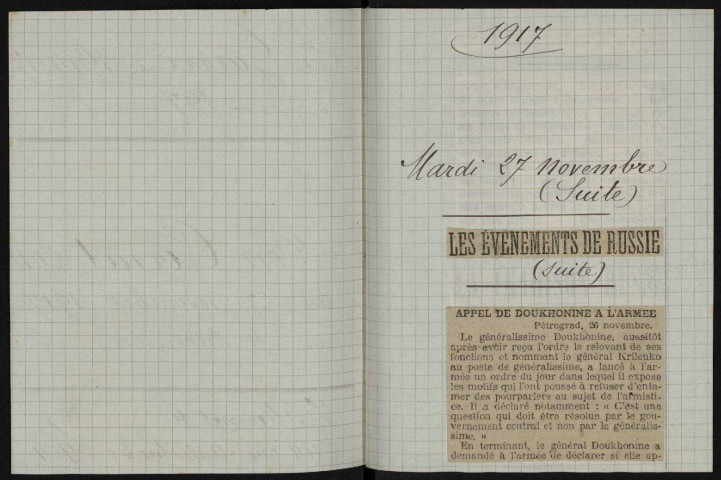 1917
Mardi 27 novembre
(Suite)
LES ÉVÉNEMENTS DE RUSSIE
(suite)
APPEL DE DOUKHONINE A L'ARMEE
Pétrograd, 26 novembre.
Le généralissime Doukhonine, aussitôt
après avoir reçu l'ordre le relevant de ses
fonctions et nommant le général Krilenko
au poste de généralissime, a lancé à l'ar-
mée un ordre du jour dans lequel il expose
les motifs qui l'ont poussé à refuser d'enta-
mer des pourparlers au sujet de l'armisti-
ce. Il a déclaré notamment : « C'est une
question qui doit être résolue par le gou-
vernement central et non par le généralis-
sime. »
En terminant, le général Doukhonine a
demandé à l'armée de déclarer si elle ap-